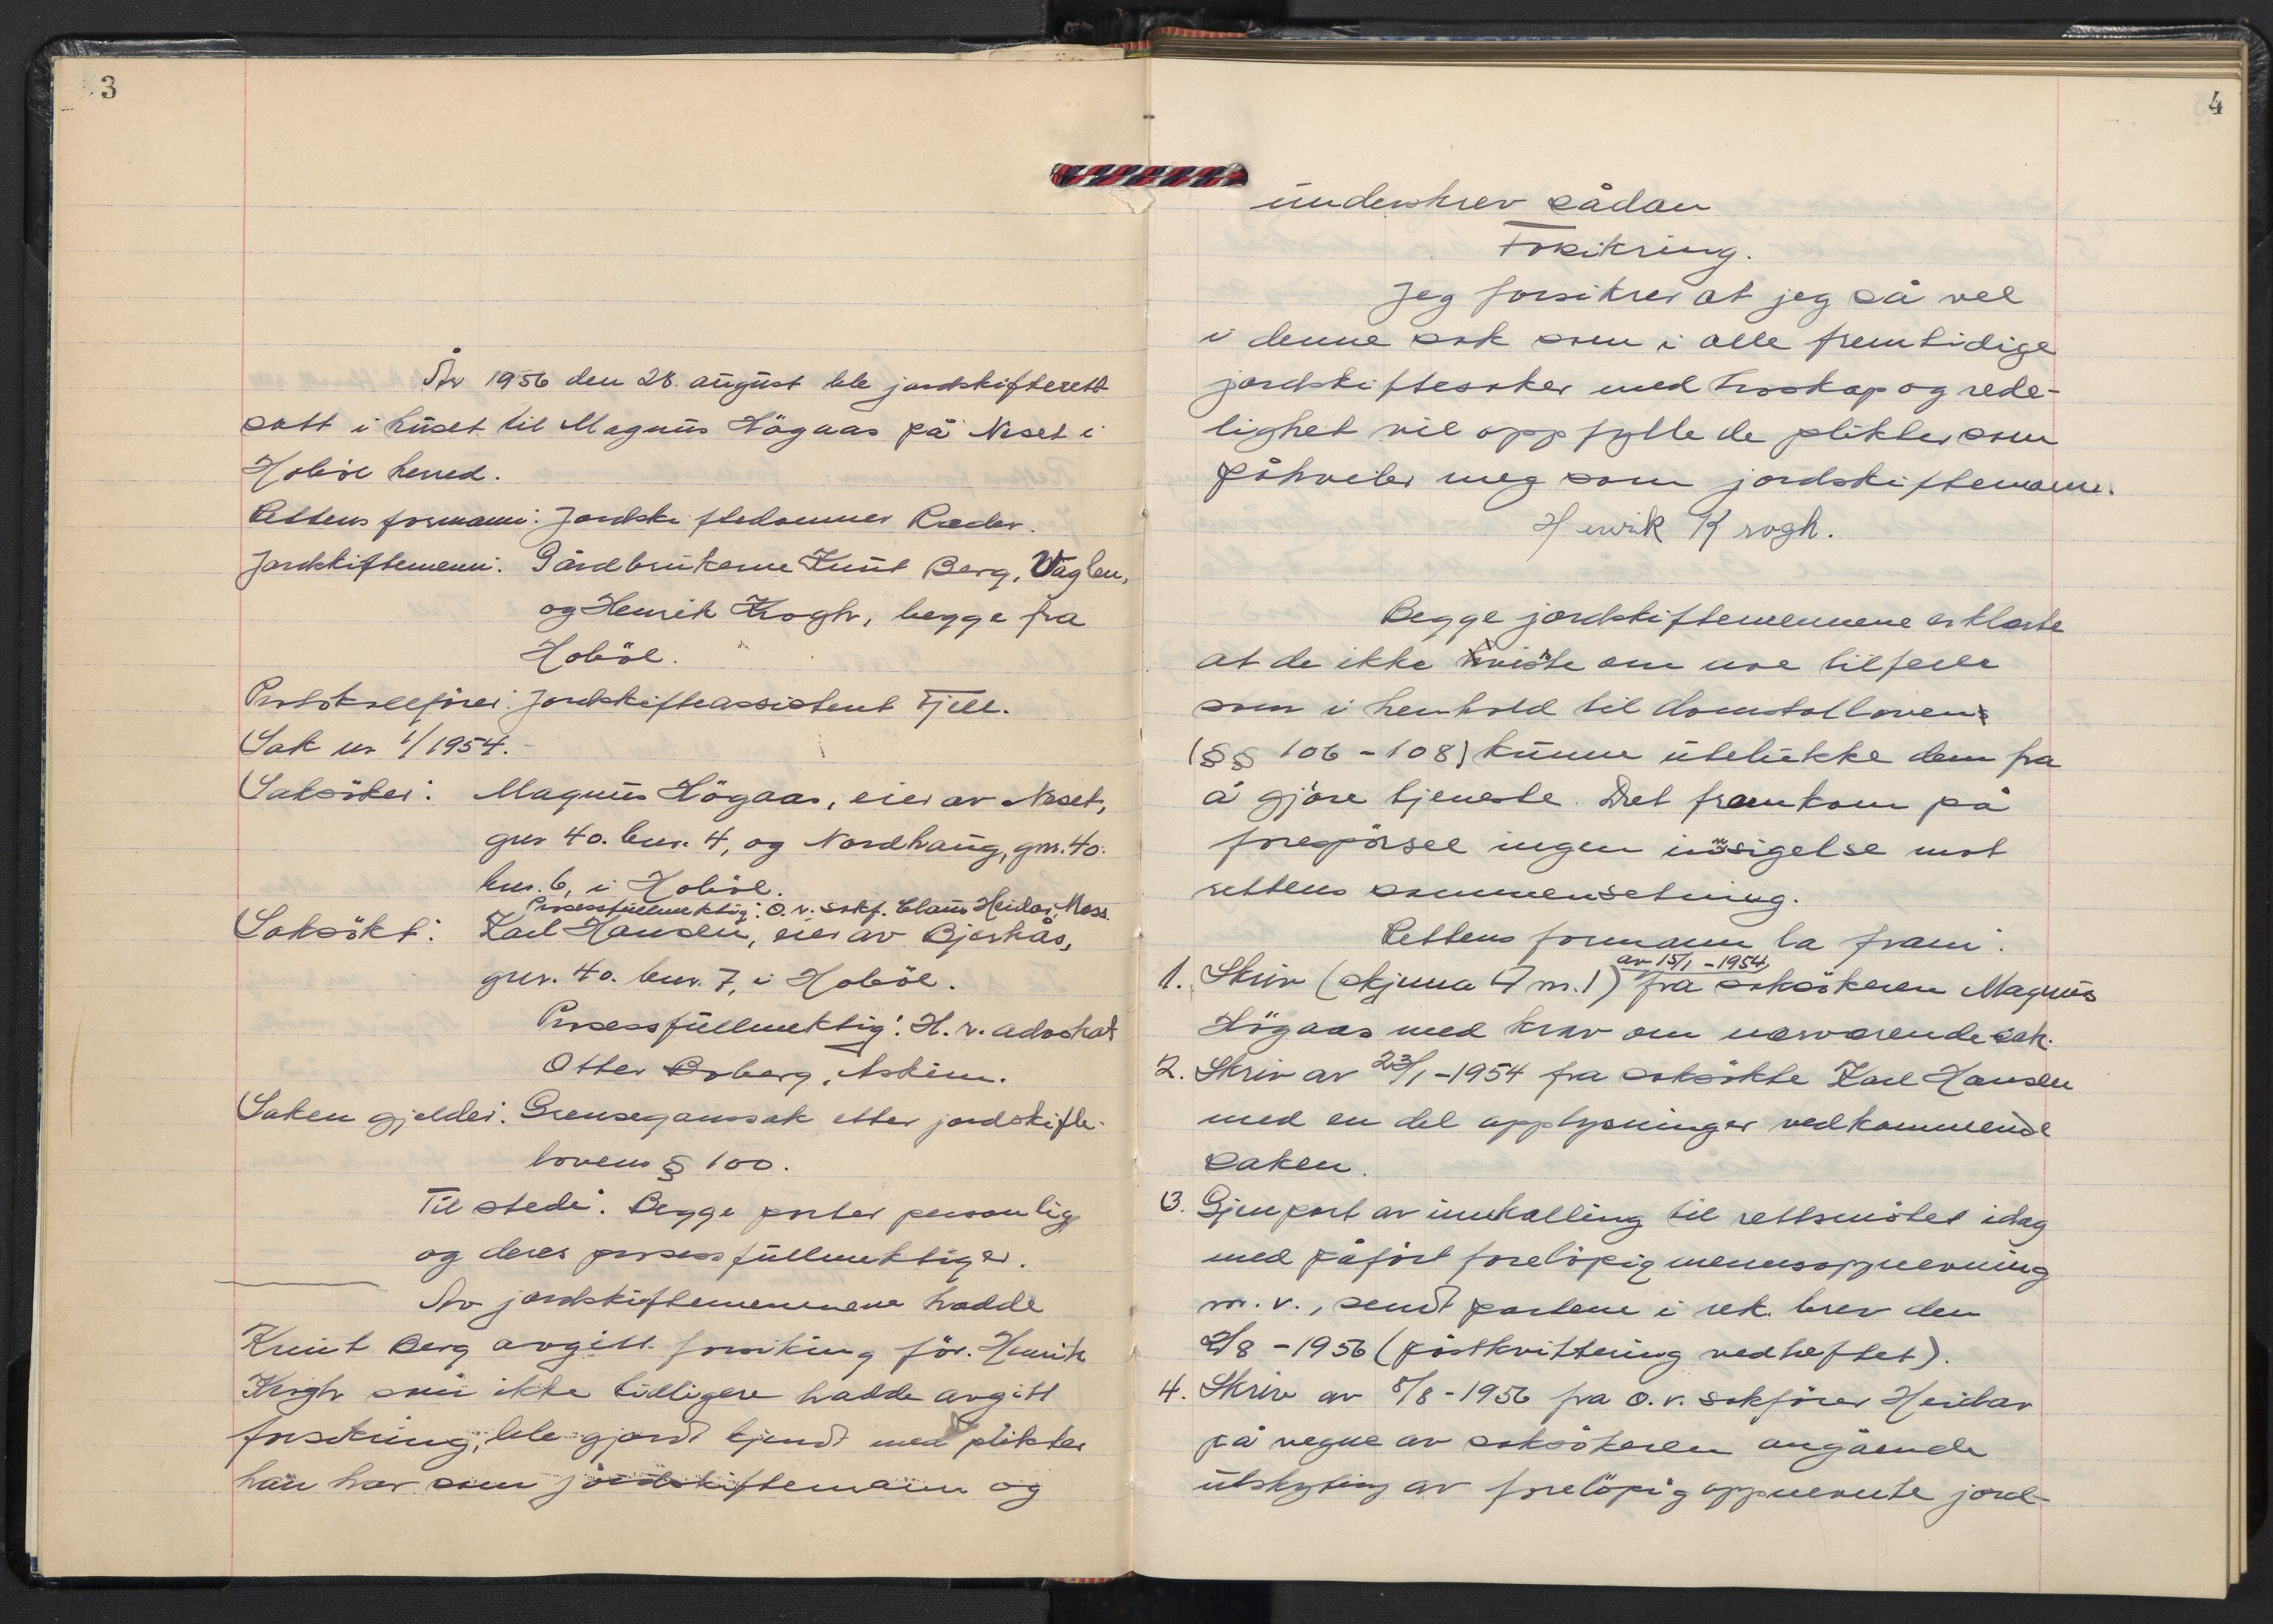 3
År 1956 den 28. august ble jordskifterett
satt i huset til Magnus Högaas på Neset i
Hobøl herred.
Rettens formann: Jordskiftedommer Ræder.
Jordskiftemenn: Gårdbrukerne Knut Berg, Vaglen,
og Henrik Krogh, begge fra
Hoböl.
Protokollförer: Jordskifteassistent Fjell.
Sak nr 1/1954.
Saksöker: Magnus Högaas, eier av Neset,
gnr 40. bnr. 4, og Nordhaug, gnr. 40.
bnr. 6, i Hoböl.
Prosessfullmektig: O.r. sakf. Claus Heidar, Moss.
Saksökt: Karl Hansen, eier av Bjerkås,
gnr. 40. bnr. 7, i Hoböl.
Prosessfullmektig: H.r. advokat
Otter Boberg, Askim.
Saken gjelder: Grensegangssak etter jordskifte-
lovens § 100.
Til stede: Begge parter personlig
og deres prosessfullmektiger.
Av jordskiftemennene hadde
Knut Berg avgitt forsikring för. Henrik
Krogh som ikke tidligere hadde avgitt
forsikring, ble gjordt kjendt med plikter
han har som jordskiftemann og
4
underskrev sådan
Forsikring.
Jeg forsikrer at jeg så vel
i denne sak som i alle fremtidige
jordskiftesaker med troskap og rede-
lighet vil oppfylle de plikter som
påhviler meg som jordskiftemann.
Henrik Krogh.
Begge jordskiftemennene erklærte
at de ikke visste om noe tilfelle
som i henhold til domstolloven
(§§ 106 - 108) kunne utelukke dem fra
å gjöre tjeneste. Det framkom på
forespörsel ingen innsigelse mot
rettens sammensetning.
Rettens formann la fram:
1. Skriv (skjema 47 m.1) av 15/1 - 1954, fra saksökeren Magnus
Högaas med krav om nærværende sak.
2. Skriv av 23/1 - 1954 fra saksökte Karl Hansen
med en del opplysninger vedkommende
saken.
3. Gjenpart av innkalling til rettsmötet idag
med påfört forelöpig mennsoppnevning
m.v., sendt partene i rek. brev den
2/8 - 1956 (postkvittering vedheftet).
4. Skriv av 8/8 - 1956 fra o.r. sakförer Heidar
på vegne av saksökeren angående
utskyting av forelöpig oppnevnte jord-